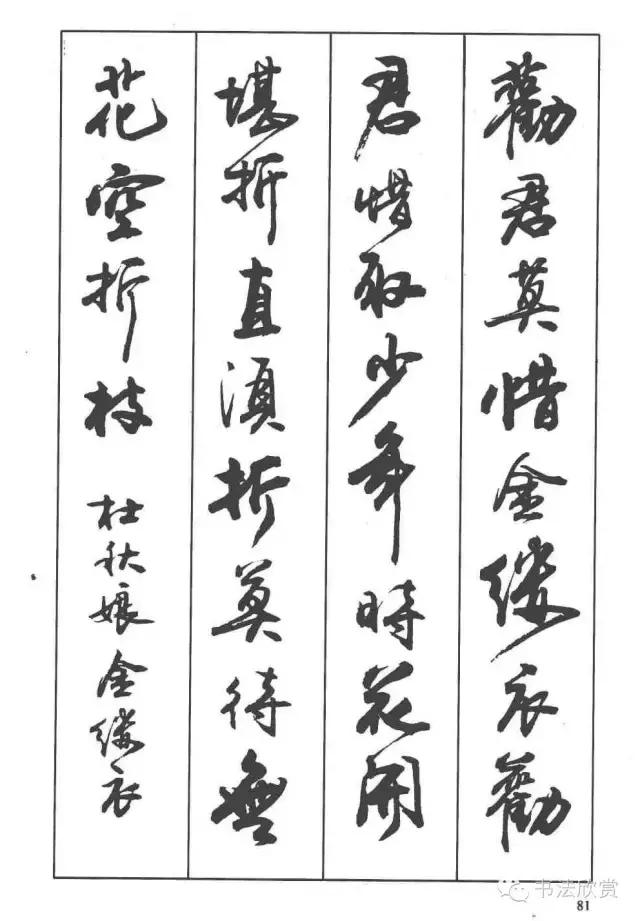 勸君莫惜金缕衣勸
君惜取少年時花開
堪折直須折莫待無
花空折枝 杜秋娘金缕衣
书法欣赏
81